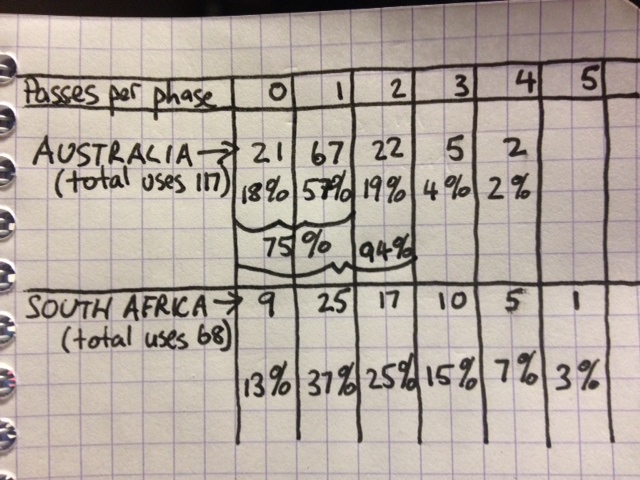 Passes per phase 0 1 2 3 4 5
AUSTRALIA → 21 67 22 5 2
(total uses 117) 18% 57% 19% 4% 2%
75% 94%
SOUTH AFRICA → 9 25 17 10 5 1
(total uses 68)
13% 37% 25% 15% 7% 3%